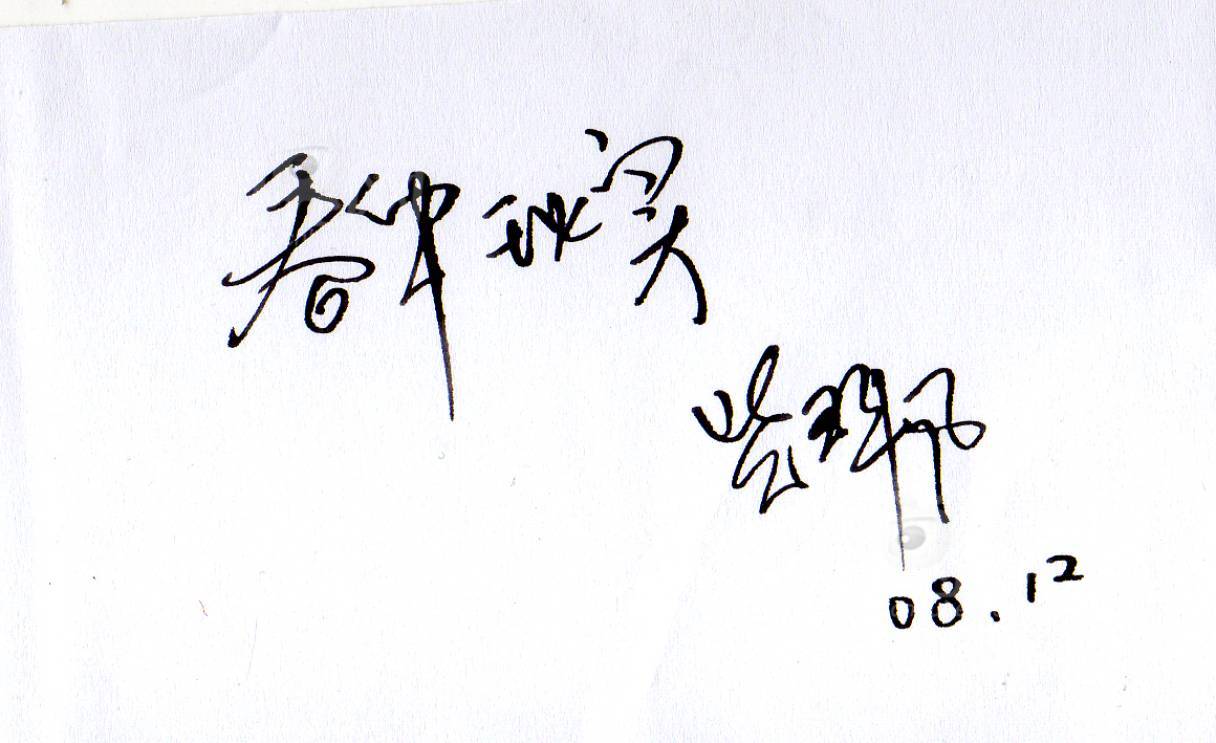 春华秋实
08.12